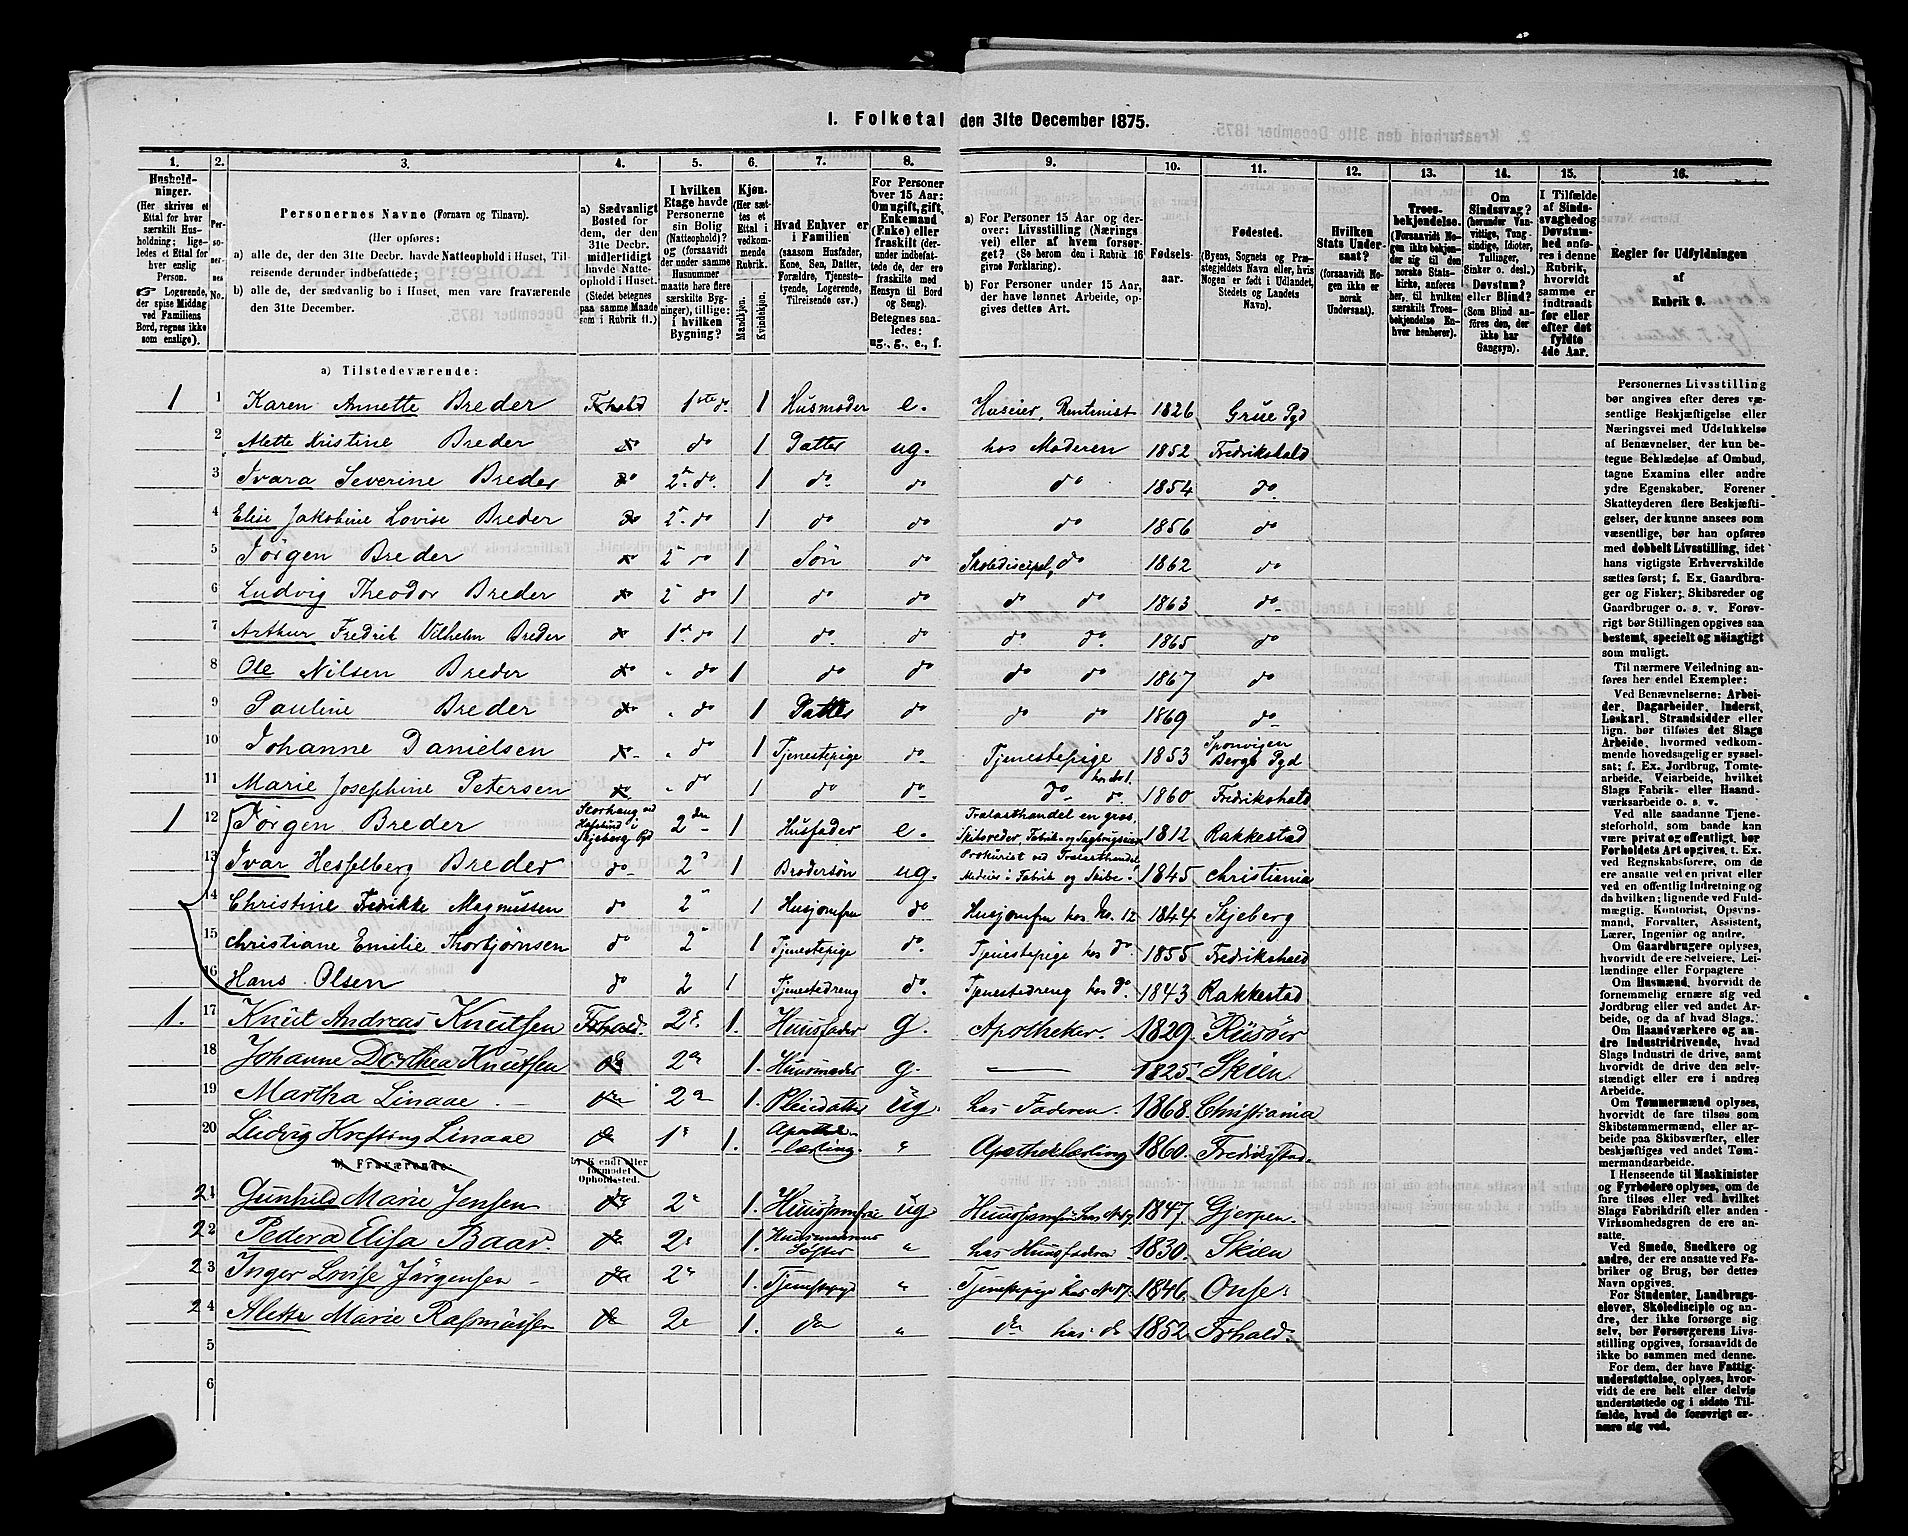 1. Folketal den 31te December 1875.
1. 2. 3. 4. 5. 6. 7. 8. 9. 10. 11. 12. 13. 14. 15. 16.
Husholdninger. (Her skrives et Ettal for hver særskilt Husholdning; ligeledes et Ettal for hver enslig Person. Logerende, der spise Middag ved Familiens Bord, regnes ikke som enslige).
Personernes No.
Personernes Navne (Fornavn og Tilnavn).
(Her opføres:
a) alle de, der den 31te Decbr. havde Natteophold i Huset, Tilreisende derunder indbefattede;
b) alle de, der sædvanlig bo i Huset, men vare fraværende den 31te December.
a) Sædvanligt Bosted for dem, der den 31te Decbr. midlertidigt havde Natteophold i Huset. (Stedet betegnes paa samme Maade som i Rubrik 11.)
I hvilken Etage havde Personerne sin Bolig (Natteophold)? og (forsaavidt der under samme Husnummer maatte høre flere særskilte Bygninger), tillige: i hvilken Bygning?
Kjøn. (Her sættes et Ettal i vedkommende Rubrik. Mandkjøn. Kvindekjøn.
Hvad Enhver er i Familien (saasom Husfader, Kone, Søn, Datter, Forældre, Tjenestetyende, Logerende, Tilreisende osv.)
For Personer over 15 Aar: Om ugift, gift, Enkemand (Enke) eller fraskilt (derunder indbefattede de, der ere fraskilte med Hensyn til Bord og Seng) Betegnes saaledes: ug., g., e., f.
a) For Personer 15 Aar og derover: Livsstilling (Næringsvei) eller af hvem forsørget? (Se herom den i Rubrik 16 givne Forklaring).
b) For Personer under 15 Aar, der have lønnet Arbeide, opgives dettes Art.
Fødselsaar.
Fødested. (Byens, Sognets og Præstegjeldets Navn eller, hvis Nogen er født i Udlandet, Stedets og Landets Navn).
Hvilken Stats Undersaat? (forsaavidt Nogen ikke er norsk Undersaat).
Troesbekjendelse. (Forsaavidt Nogen ikke bekjender sig til den norske Statskirke, anføres her, til hvilken særskilt Troesbekjendelse Enhver henhører).
Om Sindssvag? (herunder Vanvittige, Tungsindige, Idioter, Tullinger, Sinker o. desl.) Døvstum? eller Blind? (Som Blind anføres den, der ikke har Gangsyn).
I Tilfælde af Sindssvaghed og Døvstumhed anføres i denne Rubrik, hvorvidt samme er indtraadt før eller efter det fyldte 4de Aar.
Regler for Udfyldningen af Rubrik 9.
a) Tilstedeværende:
1 1 Karen Annette Breder Fr.hald 1ste do 1 Husmoder e. Huseier, Rentenist 1826 Grue Pgd
2 Alette Kristine Breder do do 1 Datter ug. hos Moderen 1852 Fredrikshald
3 Ivara Severine Breder do 2 do 1 do do do 1854 do
4 Elise Jakobine Lovise Breder do 2 do 1 do do do 1856 do
5 Jørgen Breder do 2 do 1 Søn do Skoledicipel, do 1862 do
6 Ludvig Theodor Breder do 2 do 1 do do do do 1863 do
7 Arthur Fredrik Vilhelm Breder do 1 do 1 do do do do 1865 do
8 Ole Nilsen Breder do " do 1 do do do do 1867 do
9 Pauline Breder do " do 1 Datter do do do 1869 do
10 Johanne Danielsen do " do 1 Tjenestepige do Tjenestepige 1853 Sponvigen Bergs Pgd
11 Marie Josephine Petersen do " do 1 do do do do 1860 Fredrikshald
1 12 Jørgen Breder Storhaug ved Hafslund i Skjeberg Pgd 2den 1 Husfader e. Trælasthandel en gros, Skibsreder, Fabrik- og Sagbrugseier 1812 Rakkestad
13 Ivar Hesselberg Breder do 2 1 Brodersøn ug. Prokurist ved Trælasthandel Medeier i Fabrik og Skibe 1845 Christiania
14 Christine Fredrikke Magnussen do 2 1 Husjomfru do Husjomfru hos No. 12 1844 Skjeberg
15 Christiane Emilie Thorbjørnsen do 2 1 Tjenestepige do. Tjenestepige hos do 1855 Fredrikshald
16 Hans Olsen do 2 1 Tjenestedreng do. Tjenestedreng hos do. 1843 Rakkestad
1. 17 Knut Andreas Knutsen Frhald. 2 1. Huusfader g. Apotheker. 1829 Risøer
18 Johanne Dorthea Knutsen do 2 1. Huusmoder g. — 1825 Skien
19 Martha Linaae. do 2 1. Pleiedatter ug. hos Faderen. 1868. Christiania
20 Ludvig Krefting Linaae do 1 1. Apothelærling. " Apotheklærling 1860. Fredrikstad.
b) Fraværende: b) Kjendt eller formodet Opholdssted.
21 Gunhild Marie Jensen do 2 1. Huusjomfrue ug Huusjomfru hos No 17 1847. Gjerpen.
22 Pedera Elisa Baar. do 2 1. Huusmoderens Søster " hos Huusfaderen 1830. Skien
23 Inger Lovise Jørgensen do 2 1. Tjenestepige " Tjenestepige hos No 17. 1846. Onsø
24 Alette Marie Rasmussen do 2 1. do " do hos do 1852. Frhald.
5
6
Personernes Livsstilling bør angives efter deres væsentlige Beskjæftigelse eller Næringsvei med Udelukkelse af Benævnelser, der kun betegne Beklædelse af Ombud, tagne Examina eller andre ydre Egenskaber. Forener Skatteyderen flere Beskjæftigelser, der kunne ansees som væsentlige, bør han opføres med dobbelt Livsstilling, idet hans vigtigste Erhvervskilde sættes først; f. Ex. Gaardbruger og Fisker; Skibsreder og Gaardbruger o. s. v. Forøvrigt bør Stillingen opgives saa bestemt, specielt og nøiagtigt som muligt.
Til nærmere Veiledning anføres her endel Exempler:
Ved Benævnelserne: Arbeider, Dagarbeider, Inderst, Løskarl, Strandsidder eller lign. bør tilføies det Slags Arbeide, hvormed vedkommende hovedsagelig er sysselsat; f. Ex. Jordbrug, Tomtearbeide, Veiarbeide, hvilket Slags Fabrik- eller Haandværksarbeide o. s. v.
Ved alle saadanne Tjenesteforhold, som baade kan være privat og offentligt, bør Forholdets Art opgives, t. Ex. ved Regnskabsførere, om de ere ansatte ved en privat eller ved en offentlig Indretning og da hvilken; lignende ved Fuldmægtig, Kontorist, Opsynsmand, Forvalter, Assistent, Lærer, Ingeniør og andre.
Om Gaardbrugere oplyses, hvorvidt de ere Selveiere, Leilændinge eller Forpagtere
Om Husmænd, hvorvidt de fornemmelig ernære sig ved Jordbrug eller ved andet Arbeide, og da af hvad Slags.
Om Haandværkere og andre Industridrivende, hvad Slags Industri de drive, samt hvorvidt de drive den selvstændigt eller ere i andres Arbeide.
Om Tømmermænd oplyses, hvorvidt de fare tilsøs som Skibstømmermænd, eller arbeide paa Skibsværfter, eller beskjæftiges ved andet Tømmermandsarbeide.
I Henseende til Maskinister og Fyrbødere oplyses, om de fare tilsøs eller ved hvilket Slags Fabrikdrift eller anden Virksomhedsgren de ere ansatte.
Ved Smede, Snedkere og andre, der ere ansatte ved Fabriker og Brug, bør dettes Navn opgives.
For Studenter, Landbrugselever, Skoledisciple og andre, der ikke forsørge sig selv, bør Forsørgerens Livsstilling opgives, forsaavidt de ikke bo sammen med denne.
For dem, der have Fattigunderstøttelse, oplyses, hvorvidt de ere helt eller delvis understøttede og i sidste Tilfælde, hvad de forøvrigt ernære sig ved.